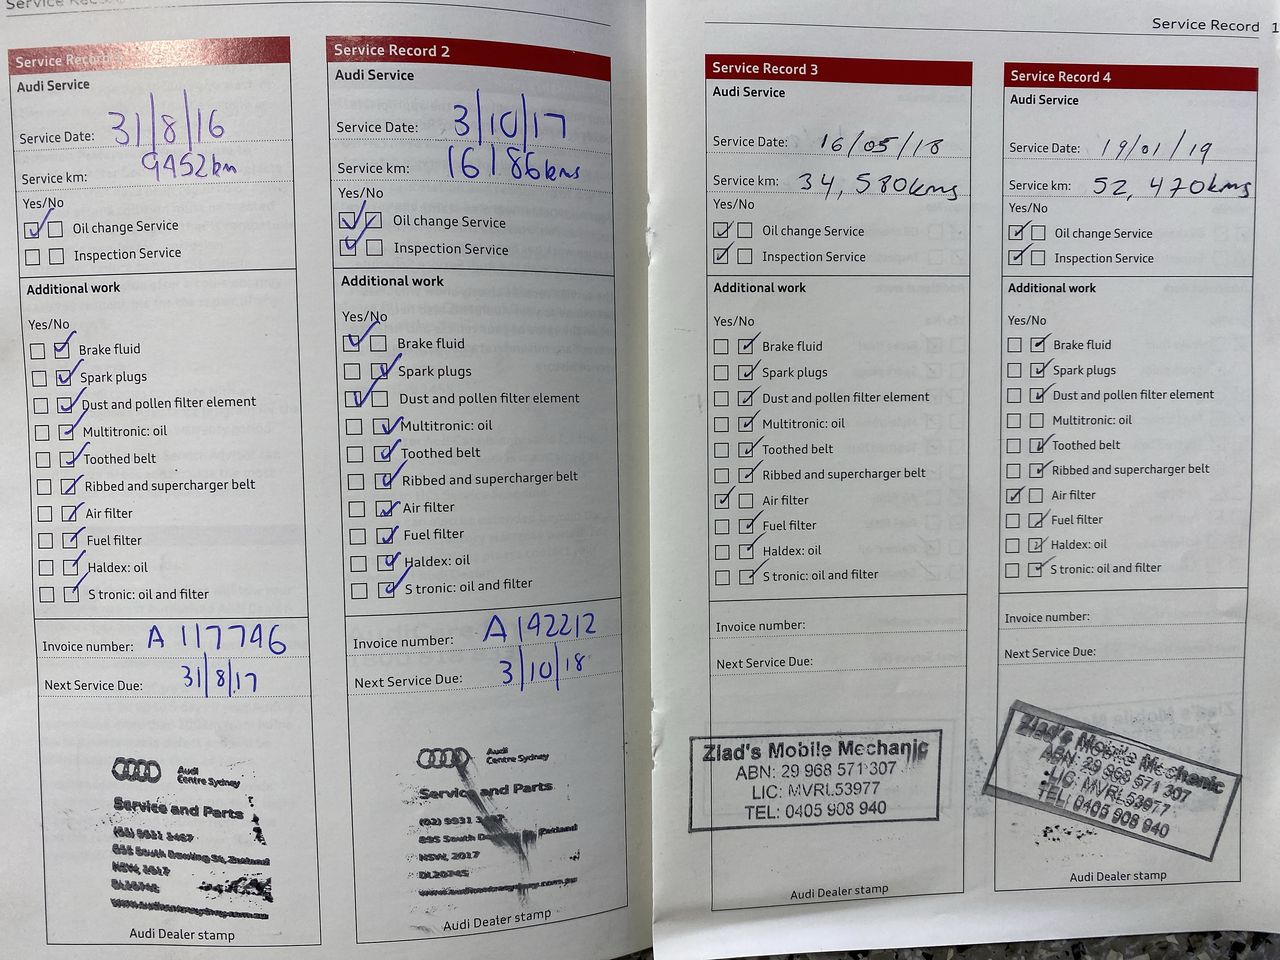 Service Record
Service Record
Audi Service
Service Date: 31/8/16
Service km: 9452km
Yes/No
Oil change Service
Inspection Service
Additional work
Yes/No
Brake fluid
Spark plugs
Dust and pollen filter element
Multitronic: oil
Toothed belt
Ribbed and supercharger belt
Air filter
Fuel filter
Haldex: oil
S tronic: oil and filter
Invoice number: A 117746
Next Service Due: 31/8/17
Audi
Centre Sydney
Service and Parts
NSW, 2017
Audi Dealer stamp
Service Record 2
Audi Service
Service Date: 3/10/17
Service km: 16186kms
Yes/No
Oil change Service
Inspection Service
Additional work
Yes/No
Brake fluid
Spark plugs
Dust and pollen filter element
Multitronic: oil
Toothed belt
Ribbed and supercharger belt
Air filter
Fuel filter
Haldex: oil
S tronic: oil and filter
Invoice number: A 142212
Next Service Due: 3/10/18
Audi
Centre Sydney
Service and Parts
(02) 9931
895 South
NSW, 2017
Audi Dealer stamp
Service Record 1
Service Record 3
Audi Service
Service Date: 16/05/18
Service km: 34,580kms
Yes/No
Oil change Service
Inspection Service
Additional work
Yes/No
Brake fluid
Spark plugs
Dust and pollen filter element
Multitronic: oil
Toothed belt
Ribbed and supercharger belt
Air filter
Fuel filter
Haldex: oil
S tronic: oil and filter
Invoice number:
Next Service Due:
Ziad's Mobile Mechanic
ABN: 29 968 571 307
LIC: MVRL53977
TEL: 0405 908 940
Audi Dealer stamp
Service Record 4
Audi Service
Service Date: 19/01/19
Service km: 52,470kms
Yes/No
Oil change Service
Inspection Service
Additional work
Yes/No
Brake fluid
Spark plugs
Dust and pollen filter element
Multitronic: oil
Toothed belt
Ribbed and supercharger belt
Air filter
Fuel filter
Haldex: oil
S tronic: oil and filter
Invoice number:
Next Service Due:
Ziad's Mobile Mechanic
ABN: 29 968 571 307
LIC: MVRL53977
TEL: 0405 908 940
Audi Dealer stamp